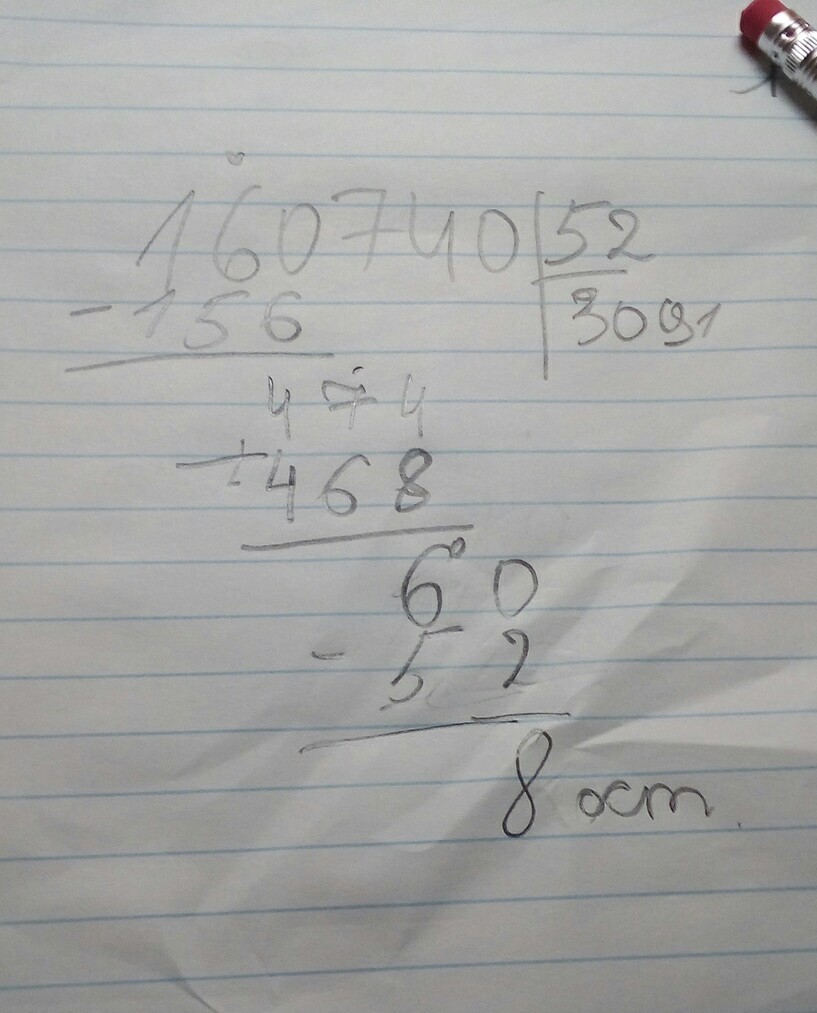 160740 52
- 156 3091
474
- 468
60
- 52
8 ост.